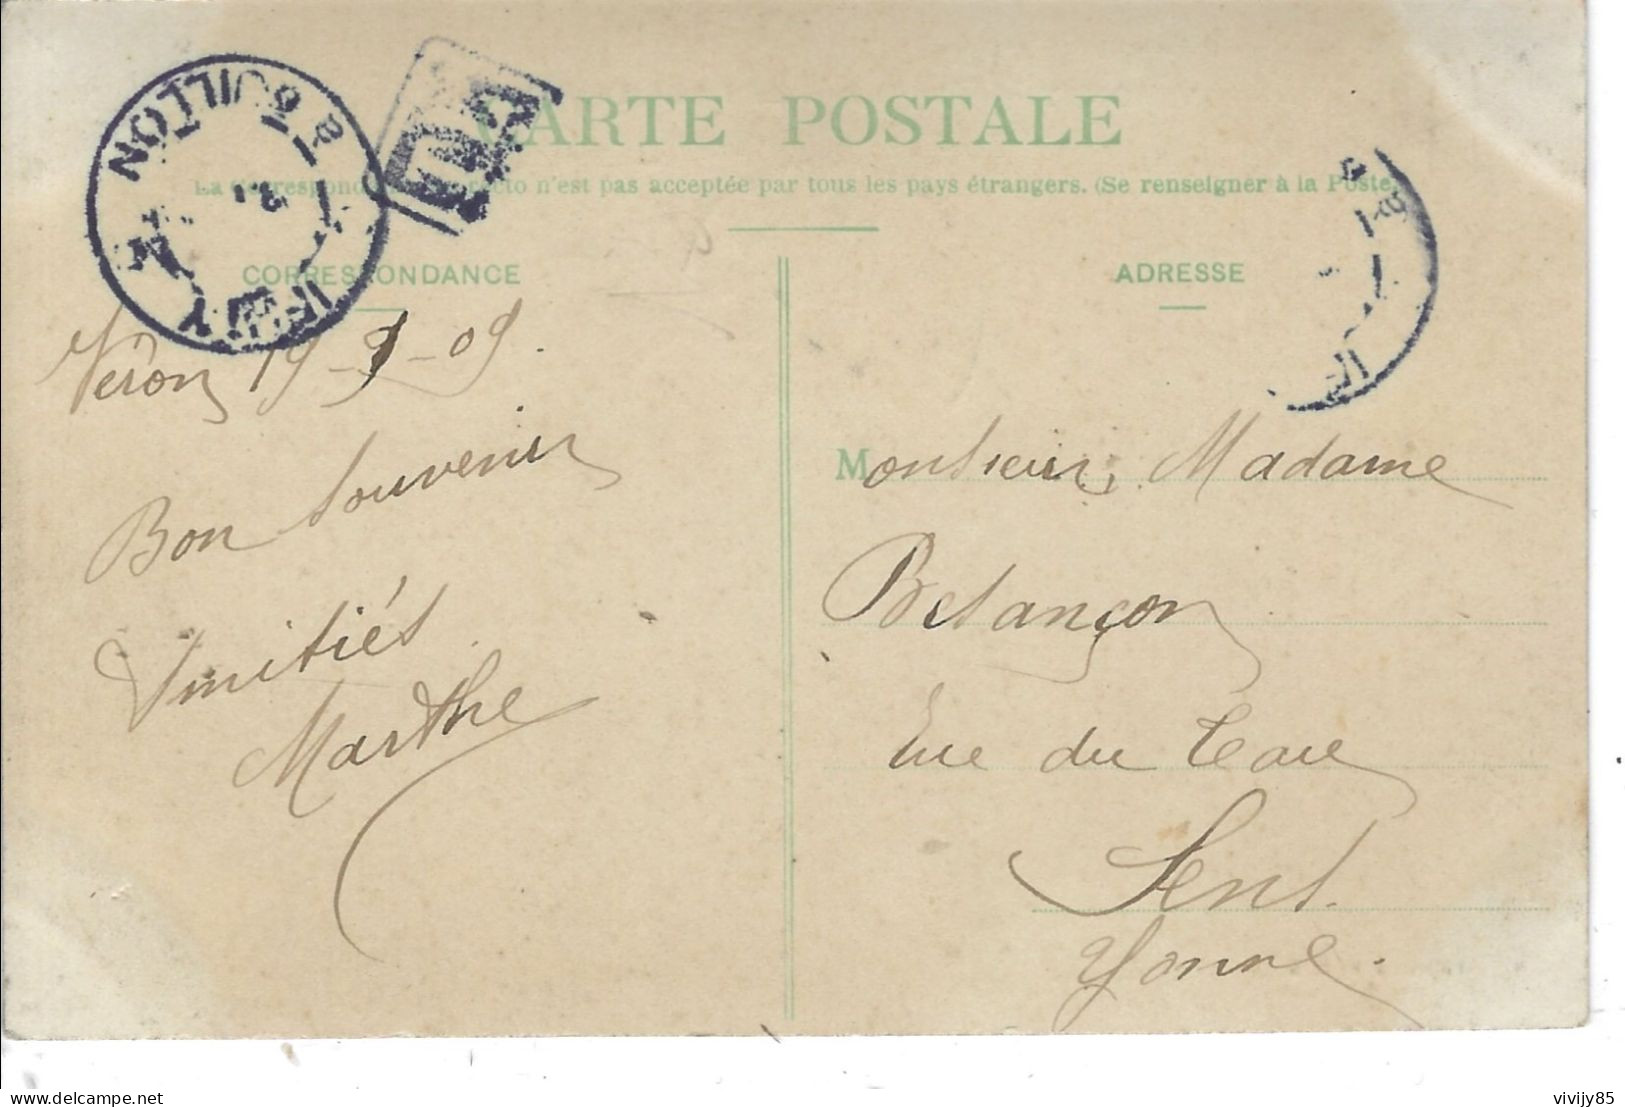 CARTE POSTALE
La Correspondance au recto n'est pas acceptée par tous les pays étrangers. (Se renseigner à la Poste.)
CORRESPONDANCE
Véron 19-9-09.
Bon Souvenir
Amitiés
Marthe
ADRESSE
Monsieur, Madame
Besançon
Rue du Tau
Sens.
Yonne.
delcampe.net
vivijy85